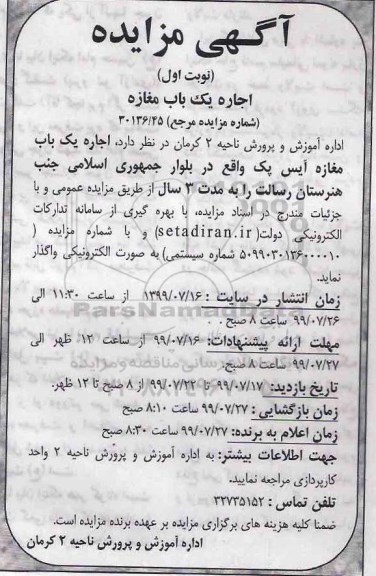 آگهی مزایده
(نوبت اول)
اجاره یک باب مغازه
(شماره مزایده مرجع) ۳۰۱۳۶/۴۵
اداره آموزش و پرورش ناحیه ۲ کرمان در نظر دارد، اجاره یک باب
مغازه آیس پک واقع در بلوار جمهوری اسلامی جنب
هنرستان رسالت را به مدت ۳ سال از طریق مزایده عمومی و با
جزئیات مندرج در اسناد مزایده، با بهره گیری از سامانه تدارکات
الکترونیکی دولت(setadiran.ir) و با شماره مزایده (
۵۰۹۹۰۳۰۱۳۶۰۰۰۰۱۰ شماره سیستمی) به صورت الکترونیکی واگذار
نماید.
زمان انتشار در سایت : ۱۳۹۹/۰۷/۱۶ از ساعت ۱۱:۳۰ الی
۹۹/۰۷/۲۶ ساعت ۸ صبح .
مهلت ارائه پیشنهادات: ۹۹/۰۷/۱۶ از ساعت ۱۲ ظهر الی
۹۹/۰۷/۲۷ ساعت ۸ صبح.
تاریخ بازدید: ۹۹/۰۷/۱۷ تا ۹۹/۰۷/۲۲ از ۸ صبح تا ۱۲ ظهر.
زمان بازگشایی : ۹۹/۰۷/۲۷ ساعت ۸:۱۰ صبح
زمان اعلام به برنده: ۹۹/۰۷/۲۷ ساعت ۸:۳۰ صبح
جهت اطلاعات بیشتر: به اداره آموزش و پرورش ناحیه ۲ واحد
کارپردازی مراجعه نمایید.
تلفن تماس : ۳۲۷۳۵۱۵۲
ضمنا کلیه هزینه های برگزاری مزایده بر عهده برنده مزایده است.
اداره آموزش و پرورش ناحیه ۲ کرمان